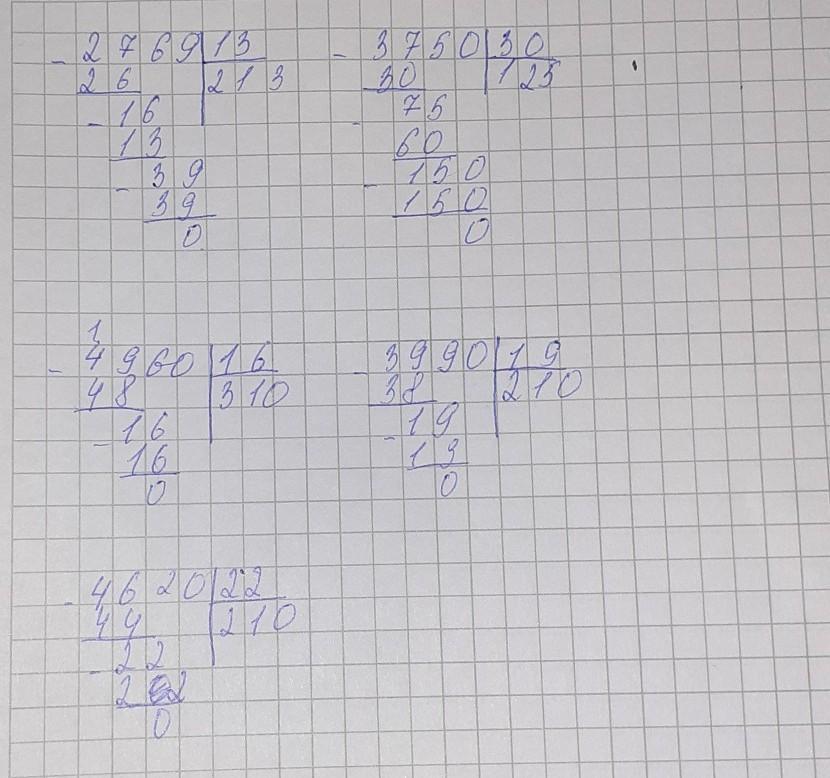 - 2769 | 13
26 213
- 16
13
- 39
39
0
- 3750 | 30
30 125
- 75
60
- 150
150
0
1
- 4960 | 16
48 310
- 16
16
0
- 3990 | 19
38 210
- 19
19
0
- 4620 | 22
44 210
- 22
22
0